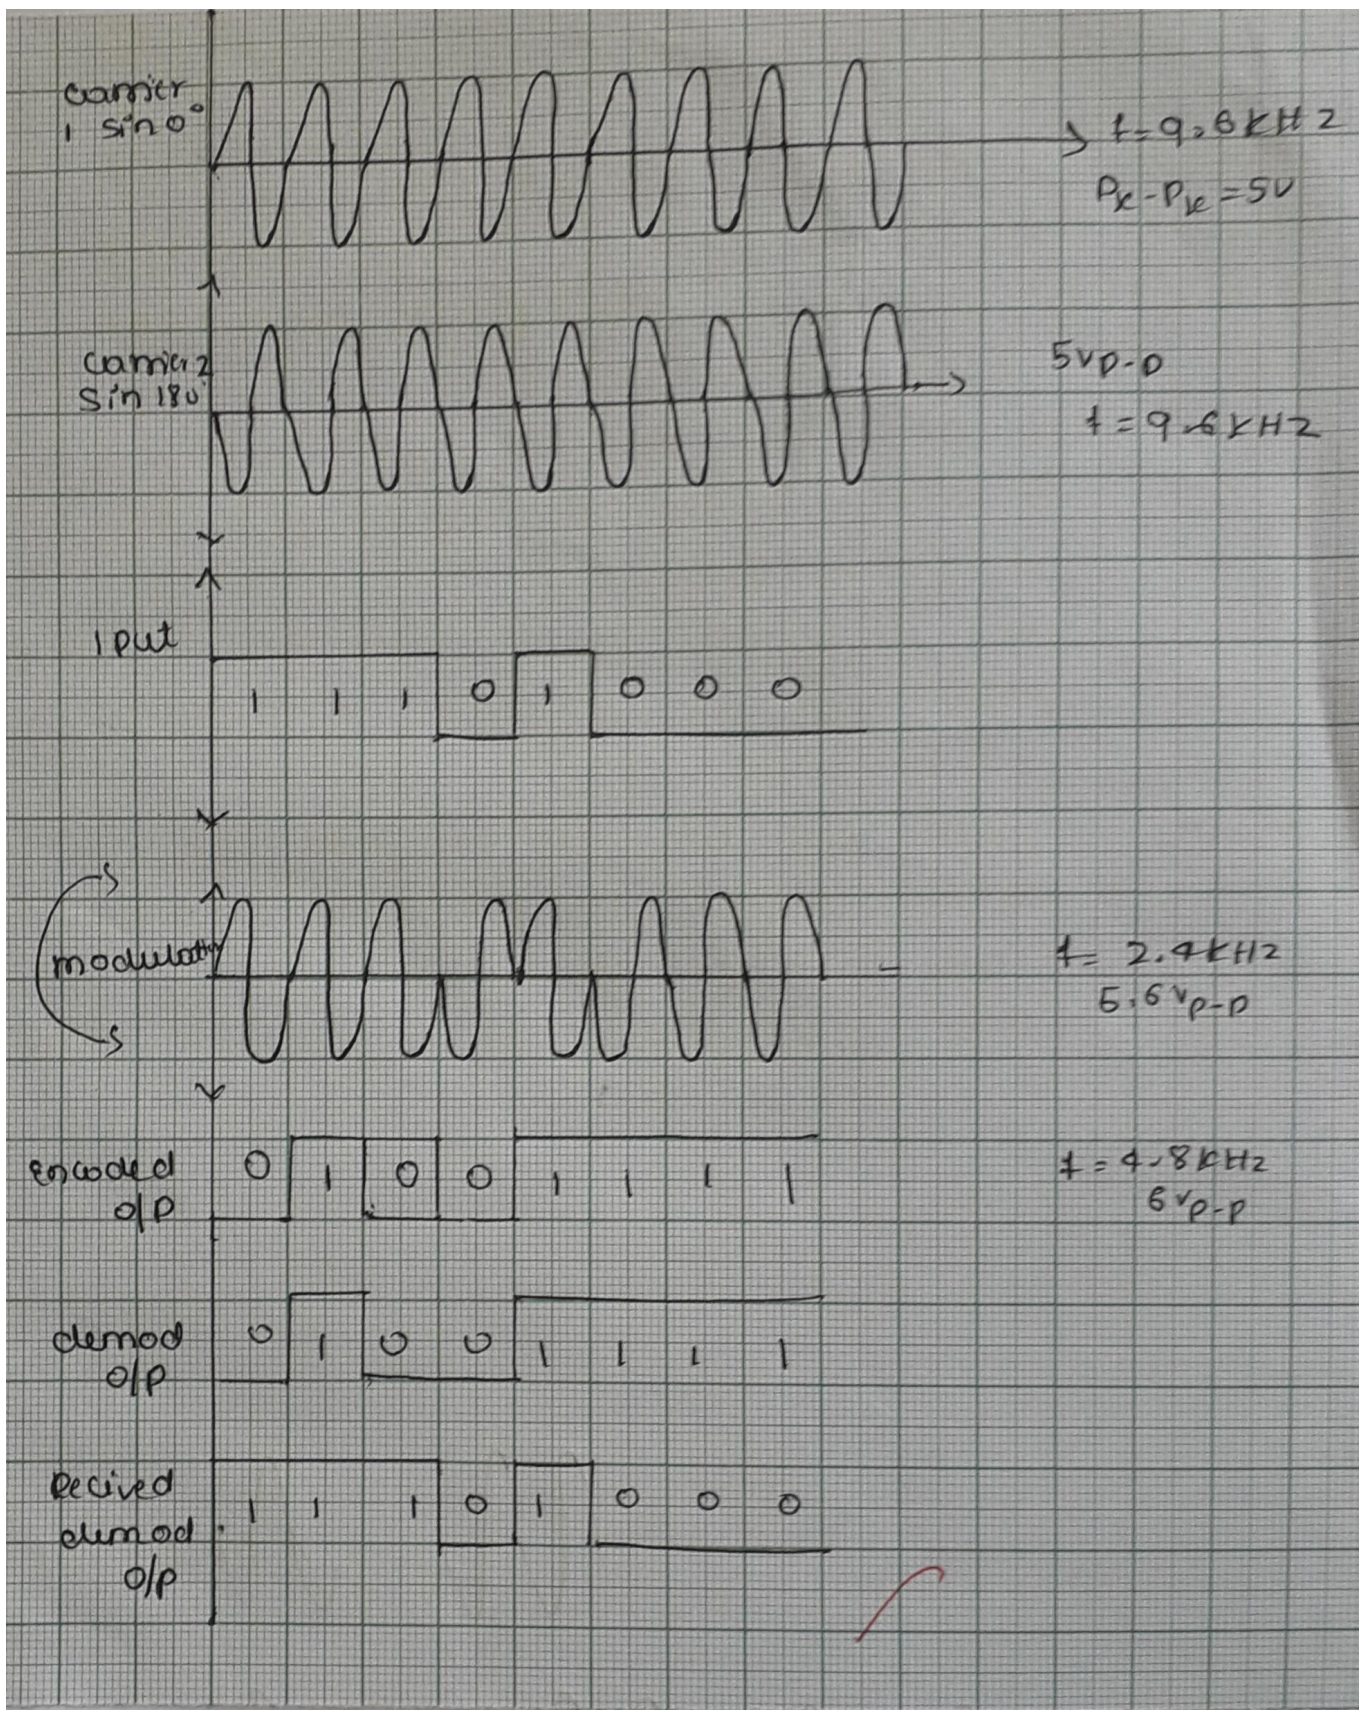 carrier
1 sin 0°
f = 9.6 KHZ
Pk - Pk = 5V
carrier 2
Sin 180°
5Vp-p
f = 9.6 KHZ
I put
1 1 1 0 1 0 0 0
f = 2.4 KHz
5.6 Vp-p
Encoded
O/P
0 1 0 0 1 1 1 1
f = 4.8 KHz
6 Vp-p
demod
O/P
0 1 0 0 1 1 1 1
Recived
demod
O/P
1 1 1 0 1 0 0 0